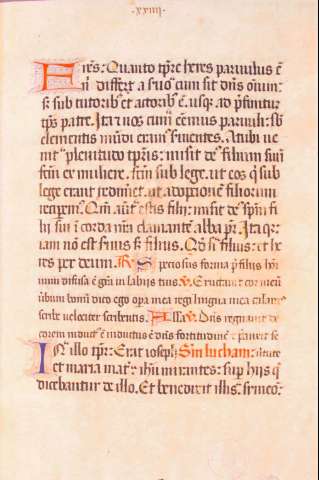 ·xxiiij·
Fres: Quanto tpre heres paruulus e
n differt a suo cum sit dns oium:
s sub tutorib et actorib e usque ad pfinitu
tps patre. Ita et nos cum eemus paruuli: sb
elementis mudi eram suientes. At ubi ve
nit plenitudo tpris: misit de filium suu
fcm ex muliere. fcm sub lege. ut eos q sub
lege erant redimet. ut adoptione filiorum
reciperem. Qm aut estis filii: misit de spm fi
lii sui i corda nra clamante abba pr. Itaqr
iam no est suus s filius. Qd si filius: et he
res per deum. R Speciosus forma p filiis ho
minum diffusa e gra in labiis tuis. V Eructavit cor meu
verbum bonu dico ego opa mea regi lingua mea calam
scribe velociter scribentis. Alla V Dns regnavit de
corem induit e induit dns fortitudine e pcinxit se
In illo tpr: Erat ioseph Sm lucham:
et maria mat ihu mirantes: sup hiis q
dicebantur de illo. Et benedixit illis simeo: